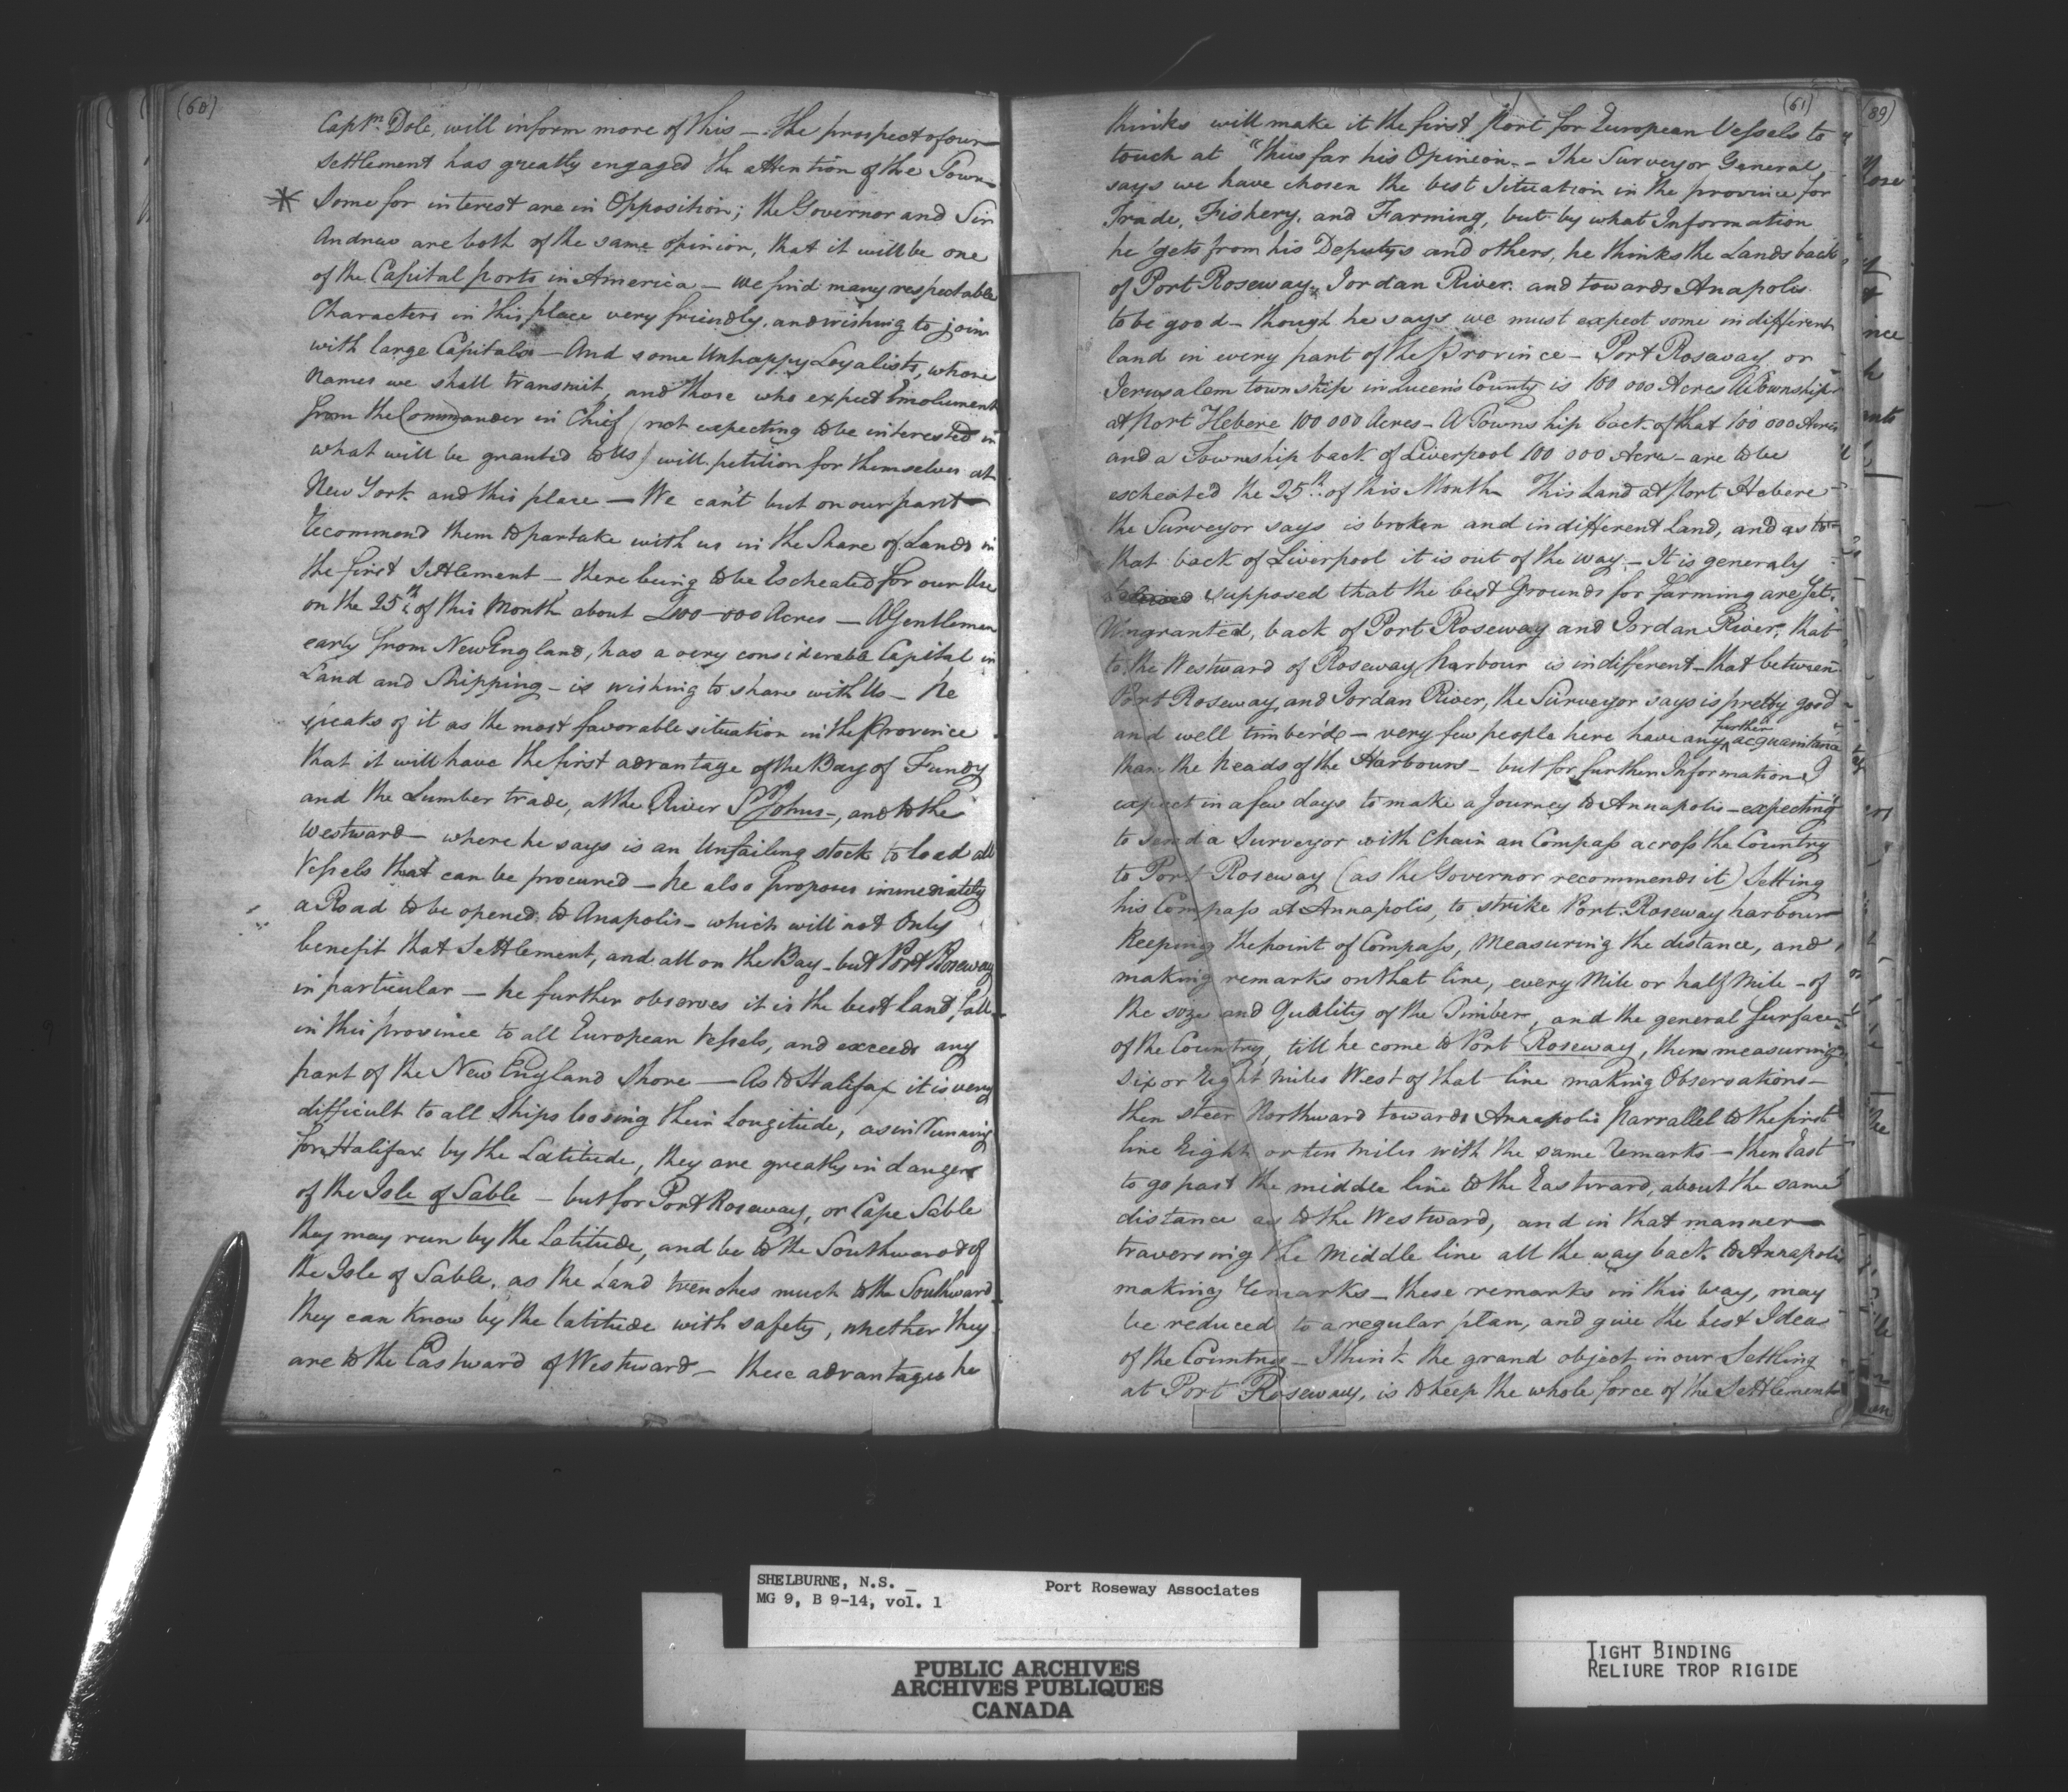 (60)
Captn. Dole, will inform more of this — the prospect of our
Settlement has greatly engaged the attention of the Town
* Some for interest are in Opposition; the Governor and Sir
Andrew are both of the same opinion, that it will be one
of the Capital ports in America — we find many respectable
Characters in this place very friendly, and wishing to join
with large Capitals — And some Unhappy Loyalists, whose
Names we shall transmit, and those who expect Emolument
from the Commander in Chief (not expecting to be interested in
what will be granted to Us) will petition for themselves at
New York and this place — We can't but on our part
recommend them to partake with us in the Share of Lands in
the first Settlement — there being to be Escheated for our Use
on the 25th of this Month about 400-000 Acres — A Gentleman
early from New England, has a very considerable Capital in
Land and Shipping — is wishing to share with Us — he
speaks of it as the most favorable situation in the Province
that it will have the first advantage of the Bay of Fundy
and the Lumber trade, at the River St Johns —, and to the
Westward — where he says is an Unfailing stock to load all
Vessels that can be procured — he also proposes immediately
a Road to be opened to Anapolis — which will not Only
benefit that Settlement, and all on the Bay — but Port Roseway
in particular — he further observes it is the best land fall
in this province to all European Vessels, and exceeds any
part of the New England Shore — As to Halifax it is very
difficult to all Ships loosing their Longitude, as in Running
for Halifax by the Latitude, they are greatly in danger
of the Isle of Sable — but for Port Roseway, or Cape Sable
they may run by the Latitude, and be to the Southward of
the Isle of Sable, as the Land trenches much to the Southward
they can know by the latitude with safety, whether they
are to the Eastward of Westward — these advantages he
(61)
thinks will make it the first port for European Vessels to
touch at "thus far his Opinion. — The Surveyor General
says we have chosen the best Situation in the province for
Trade, Fishery, and Farming, but by what Information
he gets from his Deputys and others, he thinks the Lands back
of Port Roseway, Jordan River and towards Anapolis
to be good — though he says we must expect some indifferent
land in every part of the Province — Port Roseway or
Jerusalem township in Queen's County is 100 000 Acres A Township
at port Hebere 100 000 Acres — A Township back of that 100 000 Acres
and a Township back of Liverpool 100 000 Acre — are to be
escheated the 25th of this Month This Land at port Hebere
the Surveyor says is broken and indifferent Land, and as to
that back of Liverpool it is out of the way — It is generaly
supposed that the best Grounds for farming are yet
Ungranted, back of Port Roseway and Jordan River, that
to the Westward of Roseway harbour is indifferent — that between
Port Roseway and Jordan River, the Surveyor says is pretty good
and well timber'd — very few people here have any further acquaintance
than the heads of the Harbours — but for further Information I
expect in a few days to make a Journey to Annapolis — expecting
to send a Surveyor with Chain an Compass across the Country
to Port Roseway (as the Governor recommends it) Setting
his Compass at Annapolis, to strike Port Roseway harbour
Keeping the point of Compass, Measuring the distance, and
making remarks on that line, every Mile or half Mile — of
the soze and Quality of the Timber, and the general Surface
of the Country, till he come to Port Roseway, then measuring
Six or Eight Miles West of that line making Observations —
then steer Northward towards Annapolis parrallel to the first
line Eight or ten Miles with the same Remarks — then East
to go past the middle line to the Eastward, about the same
distance as to the Westward, and in that manner
traversing the Middle line all the way back to Annapolis
making Remarks — these remarks in this way, may
be reduced to a regular plan, and give the best Idea
of the Country — I think the grand object in our Settling
at Port Roseway, is to keep the whole force of the Settlement
(89)
SHELBURNE, N.S. — Port Roseway Associates
MG 9, B 9-14, vol. 1
PUBLIC ARCHIVES
ARCHIVES PUBLIQUES
CANADA
TIGHT BINDING
RELIURE TROP RIGIDE